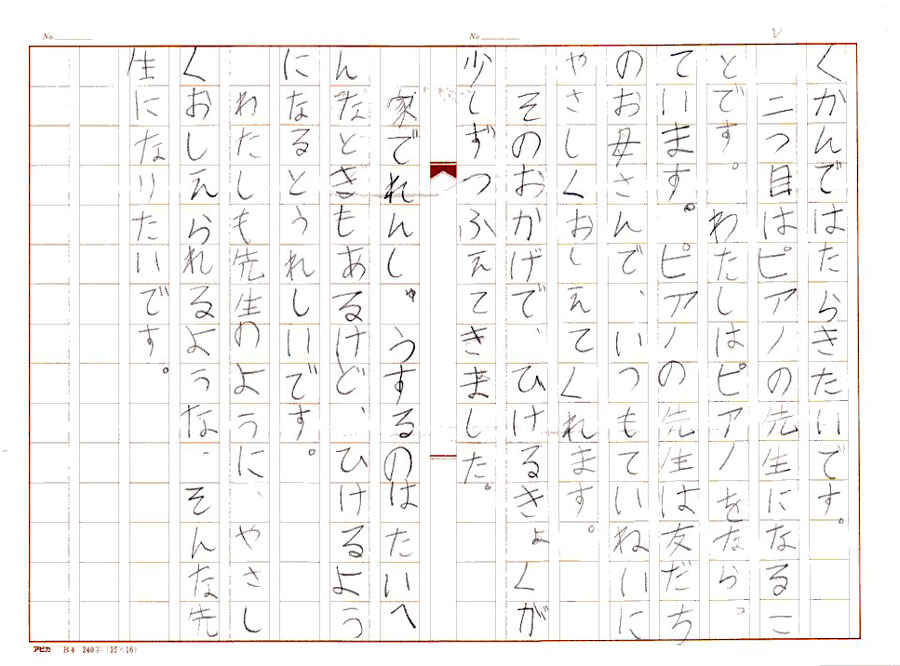 No.
No.
くかんではたらきたいです。
二つ目はピアノの先生になるこ
とです。わたしはピアノをならっ
ています。ピアノの先生は友だち
のお母さんで、いつもていねいに
やさしくおしえてくれます。
そのおかげで、ひけるきょくが
少しずつふえてきました。
家でれんしゅうするのはたいへ
んなときもあるけど、ひけるよう
になるとうれしいです。
わたしも先生のように、やさし
くおしえられるような、そんな先
生になりたいです。
アピカ B4 240字 (15×16)